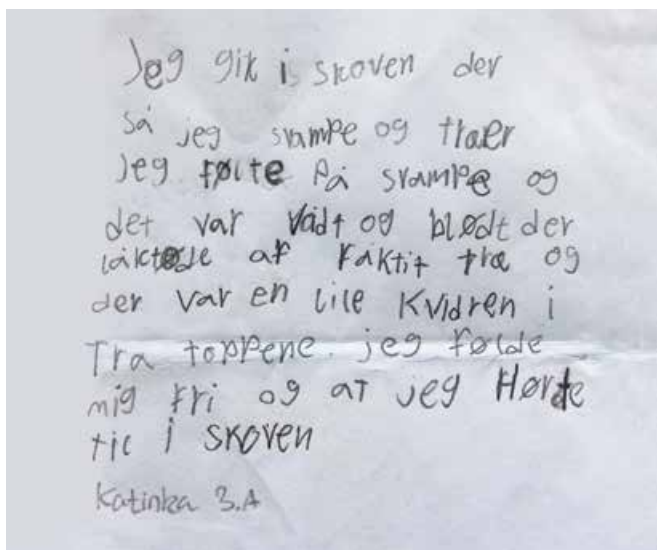 Jeg gik i skoven der
så jeg svampe og træer
Jeg følte på svampe og
det var vådt og blødt der
låktede af råktit træ og
der var en lile Kvidren i
Tra toppene. jeg følde
mig fri og at jeg Hørte
til i skoven
Katinka 3.A